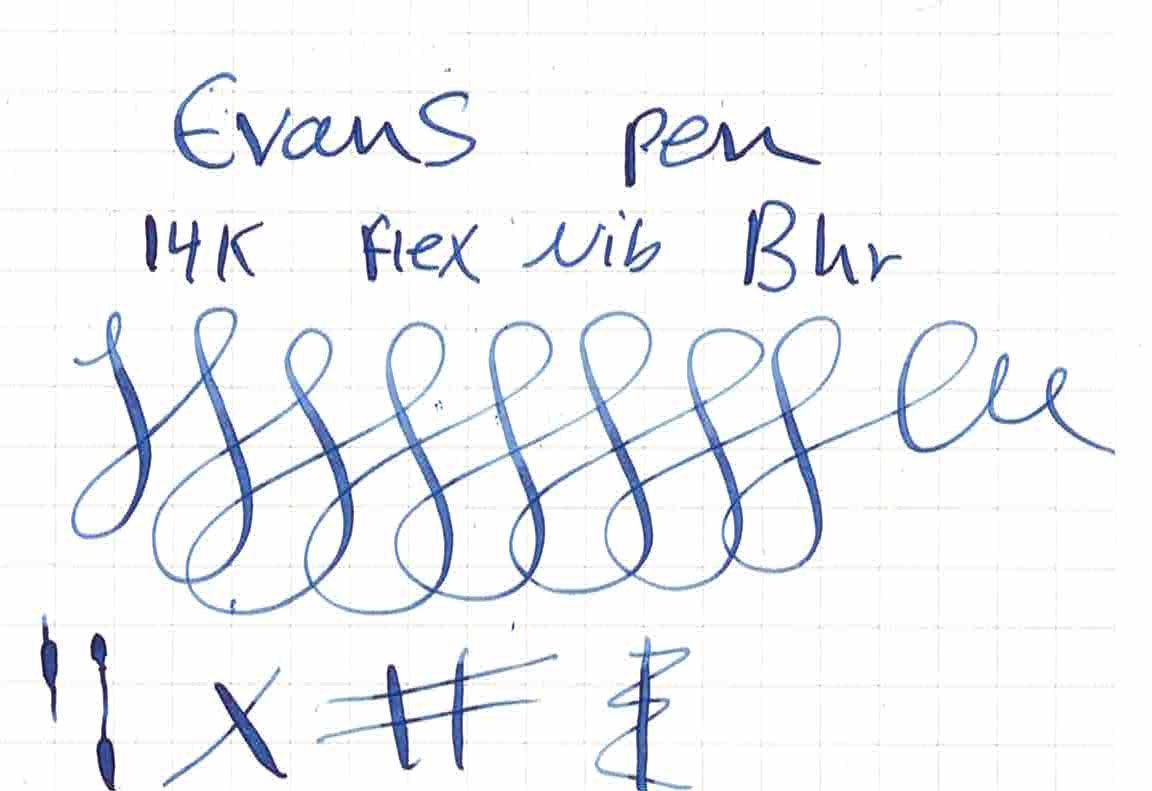 Evans pen
14K flex Nib Bhr